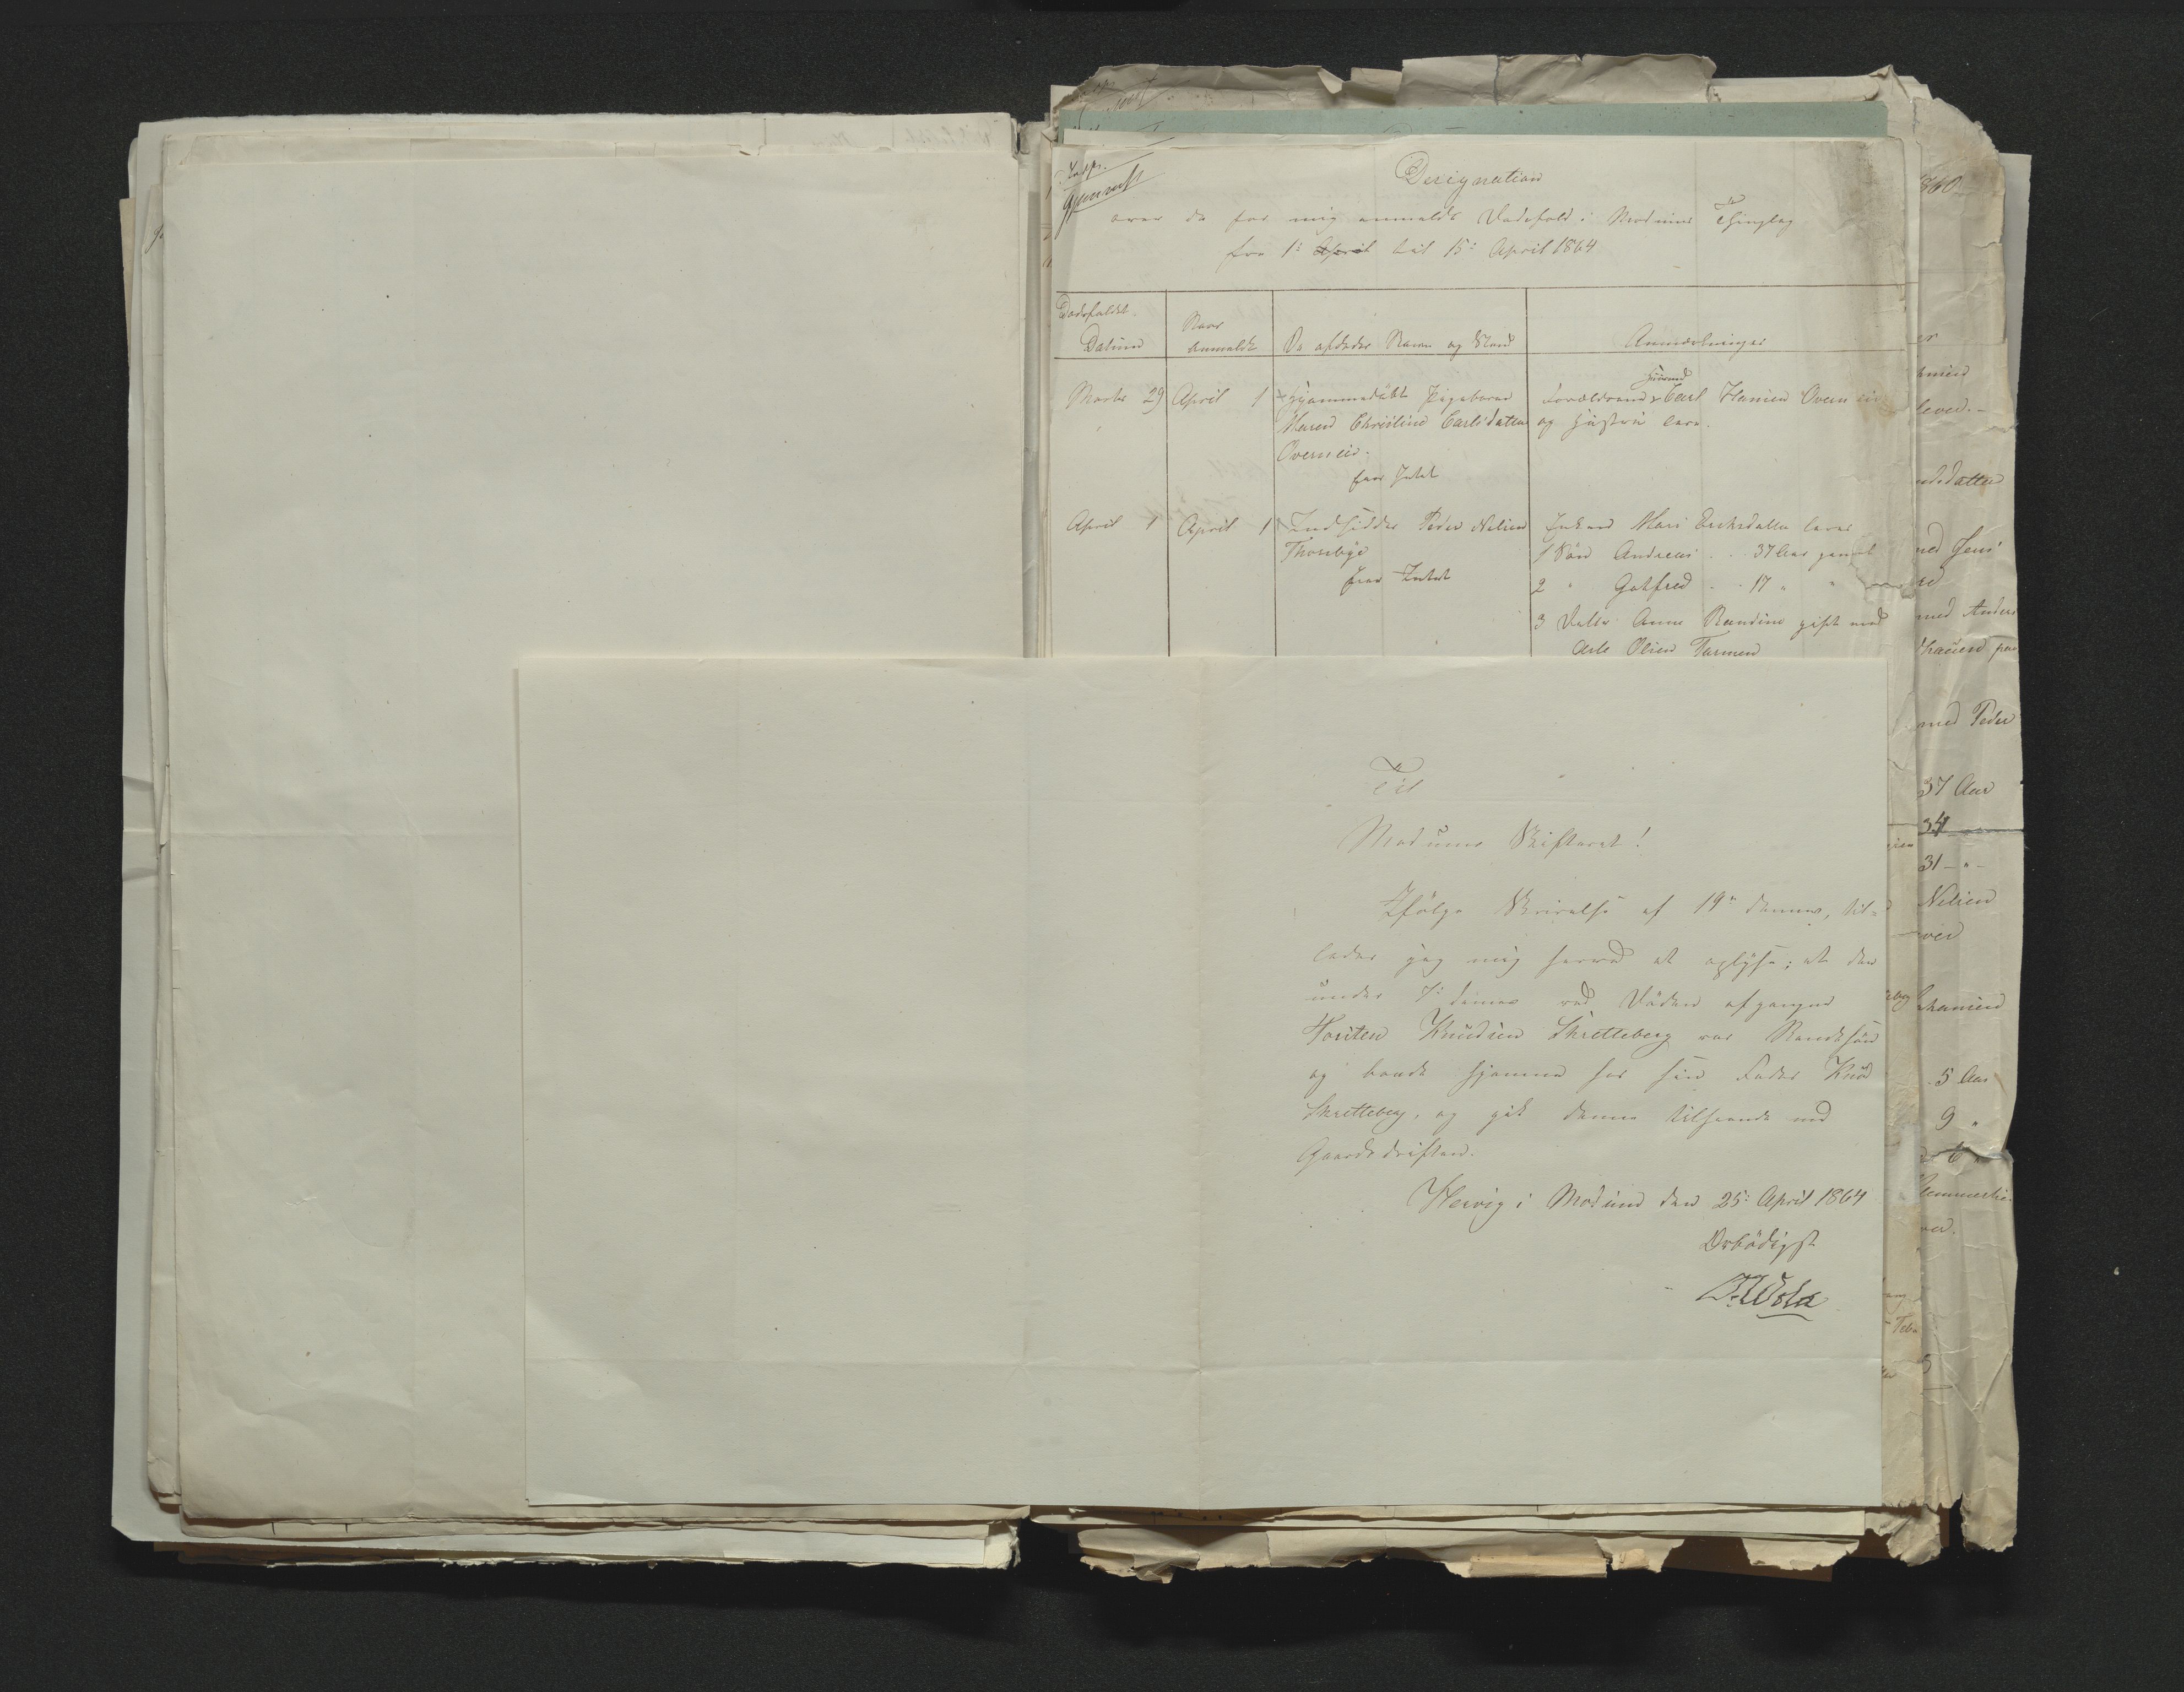 Designation
over de for mig anmeldte Dødsfald i Modums Thinglag
fra 1: April til 15: April 1864
Dødsfaldet
Datum
Naar
anmeldt
De afdødes Navn og Stand
Anmærkninger
Marts 29
April 1
Hjemmedøbt Pigebarn
Maren Christine Carlsdatter
Overn eie.
eier Intet
Huusmd
Forældrene Carl Hansen Overn eie
og Hustru lever.
April 1
April 1
Indsidder Peder Nelsen
Thorsbye
eier Intet
Enken Mari Eriksdatter lever
1 Søn Andreas . . 37 Aar gammel
2 " Gotfred . . 17 " "
3 Datter Anne Randine gift med
Asle Olsen Tarmen
Til
Modums Skifteret!
Ifølge Skrivelse af 19de dennes, til-
lader jeg mig herved at oplyse; at den
under 7: dennes ved Døden afgangne
Torsten Knudsen Skretteberg var Bondesøn
og boede hjemme hos sin Fader Knud
Skretteberg, og gik denne tilhaande ved
Gaardsdriften.
Hervig i Modum den 25: April 1864
Ærbødigst
1860
datter
med Jens
med Anders
med Peder
37 Aar
34
31 - " -
Nelsen
5 Aar
9 "
6 "